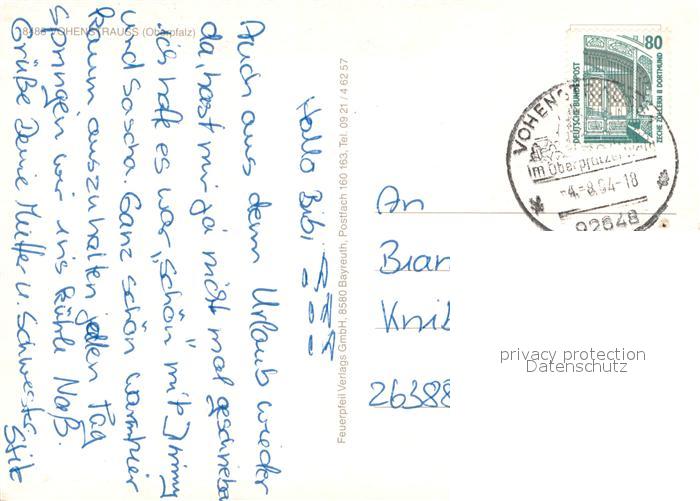 8486 VOHENSTRAUSS (Oberpfalz)
Hallo Bibi !!!
Auch aus dem Urlaub wieder
da, hast mir ja nicht mal geschrieben
ich hoffe es war „schön" mit
und Sascha. Ganz schön warm hier
kaum auszuhalten jeden Tag
springen wir ins kühle Naß.
Grüße Deine Mutter u. Schwester
Feuerpfeil Verlags GmbH, 8580 Bayreuth, Postfach 160 163, Tel. 09 21 / 4 62 57
80
DEUTSCHE BUNDESPOST
ZECHE ZOLLERN II DORTMUND
VOHENST
Im Oberpfälzer Wald
-4.-8.94-18
92648
An
Bian
Knib
26388
privacy protection
Datenschutz